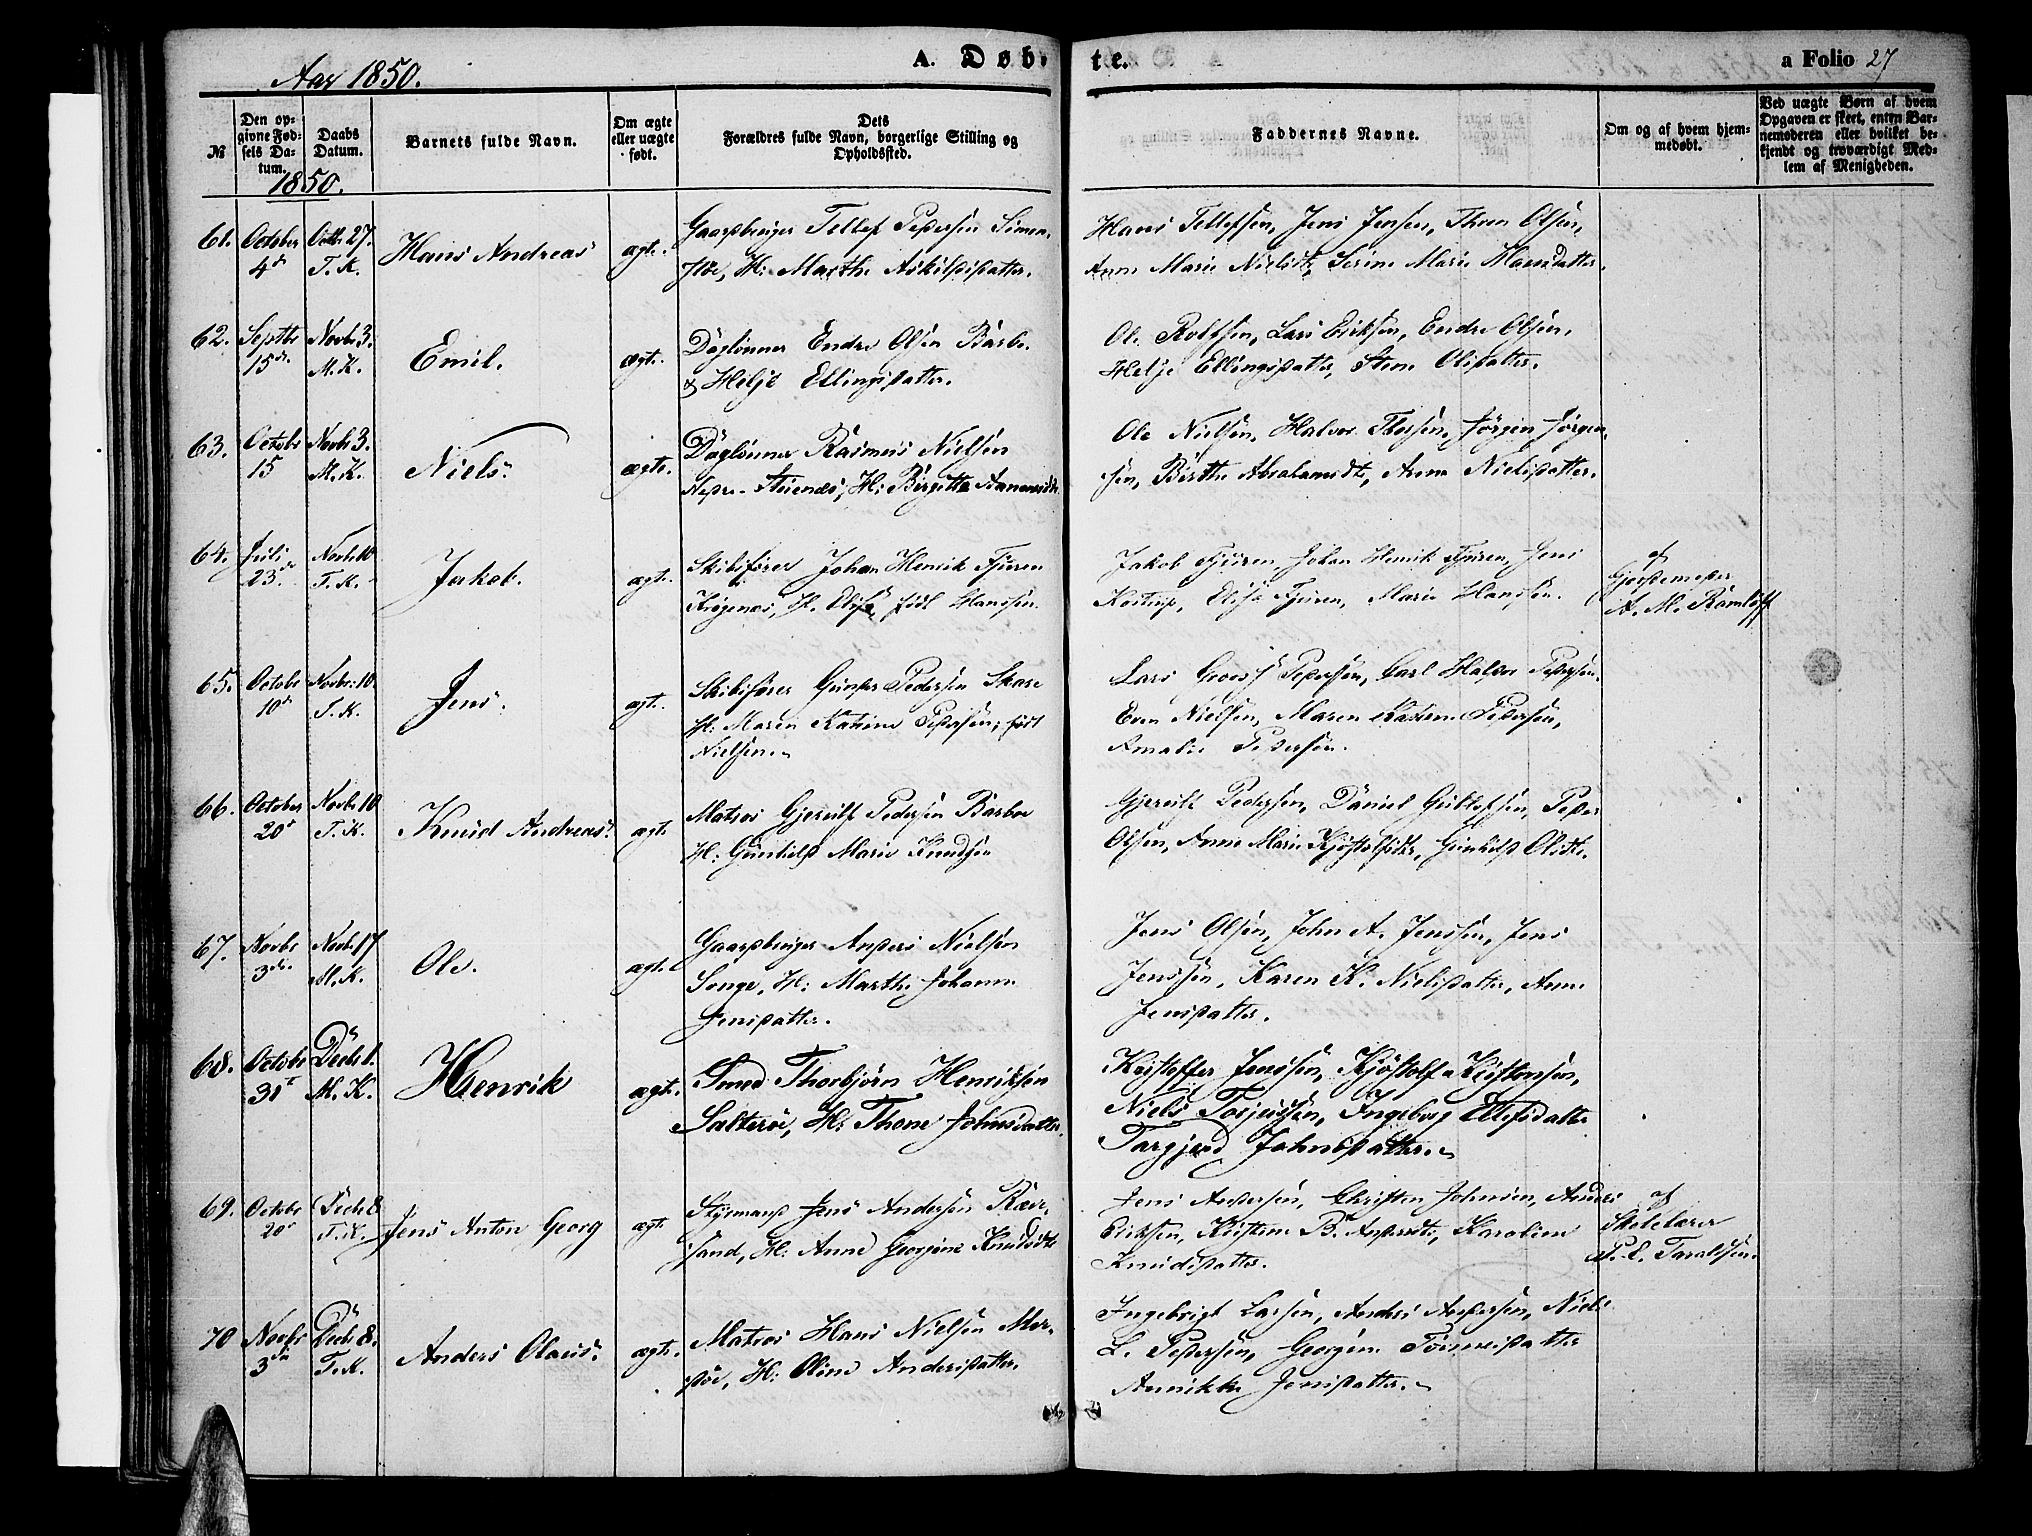 Aar 1850.
A. Døb-
te.
a Folio 27
№
Den op-
givne Fød-
sels Da-
tum.
Daabs
Datum.
Barnets fulde Navn.
Om ægte
eller uægte
født.
Dets
Forældres fulde Navn, borgerlige Stilling og
Opholdssted.
Faddernes Navne.
Om og af hvem hjem-
medøbt.
Ved uægte Børn af hvem
Opgaven er skeet, enten Bar-
nemoderen eller hvilket be-
kjendt og troværdigt Med-
lem af Menigheden.
1850.
61. October 4de
Octbr 27. T. K.
Hans Andreas
ægte.
Gaardbruger Tellef Pedersen
H: Marthe Askilsdatter.
Hans Tellefsen, Jens Jensen, Thron Olsen,
Anne Marie Nielsdtr, Serine Marie Hansdatter.
62. Septbr 15de
Novbr 3. M. K.
Emil.
ægte.
Dagleiner Endre Olsen Barbo
& Helje Ellingsdatter.
Ole Rolfsen, Lars Eriksen, Endre Olsen,
Helje Ellingsdatter, Olsdatter.
63. Octobr 15
Novbr 3. M. K.
Niels
ægte.
Dagleiner Rasmus Nielsen
Nedre H: Birgitte
Ole Nielsen, Halvor Thorsen, Jørgen Jørgen-
sen, Birthe Abrahamsdt, Anne Nielsdatter.
64. Juli 23de
Novbr 10 T. K.
Jakob.
ægte.
Skibsfører Johan Henrik Furen
H. Elise født Hanssen.
Jakob Furen, Johan Henrik Furen, Jens
Elise Furen, Marie Hanssen.
af
Gjordemoder
A. M. Ramløff
65. Octobr 10de
Novbr: 10. T. K.
Jens.
ægte.
Skibsfører Gunder Pedersen Skare
H: Maren Katrine Pedersen, født
Nielsen.
Lars Georg Pedersen, Carl Halvor Pedersen.
Even Nielsen, Maren Katrine Pedersen,
Amalie Pedersen.
66. October 20de
Novbr 10 T. K.
Knud Andreas.
ægte
Matros Gjerulf Pedersen Barboe
H: Gunhild Marie Knudsen
Gjerulf Pedersen, Daniel Gultofsen, Peder
Olsen, Anne Marie Gunhild Olsdtr.
67. Novbr 3de
Novbr 17 M. K.
Ole.
ægte
Gaardbruger Anders Nielsen
Songe, H: Marthe Johanne
Jensdatter.
Jens Olsen, John A. Jenssen, Jens
Jenssen, Karen K. Nielsdatter, Anne
Jensdatter.
68. Octobr 31te
Decbr 1. M. K.
Henrik
ægte.
Smed Thorbjørn Henriksen
Salterøe, H: Thone Johnsdatter.
Kristoffer Jenssen, Kjøstolf Kristensen,
Niels Torjussen, Ingeborg Ellefsdatter
Targjerd Johnsdatter.
69. Octobr 20de
Decbr 8 T. K.
Jens Anton Georg
ægte
Styrmand Jens Andersen Ræve-
sand, H: Anne Georgine Knudsdtr
Jens Andersen, Christen Johnsen, Anders
Eriksen, Kirstine B. Andersdt, Karoline
Knudsdatter.
af
Skolelærer
P. E. Taraldsen.
70 Novbr 3de
Decbr 8. T. K.
Anders Olaus.
ægte.
Matros Hans Nielsen Mer-
døe, H: Oline Andersdatter.
Ingebrigt Larsen, Anders Andersen, Niels
L. Pedersen, Georgine Tønnesdatter
Annikke Jensdatter.